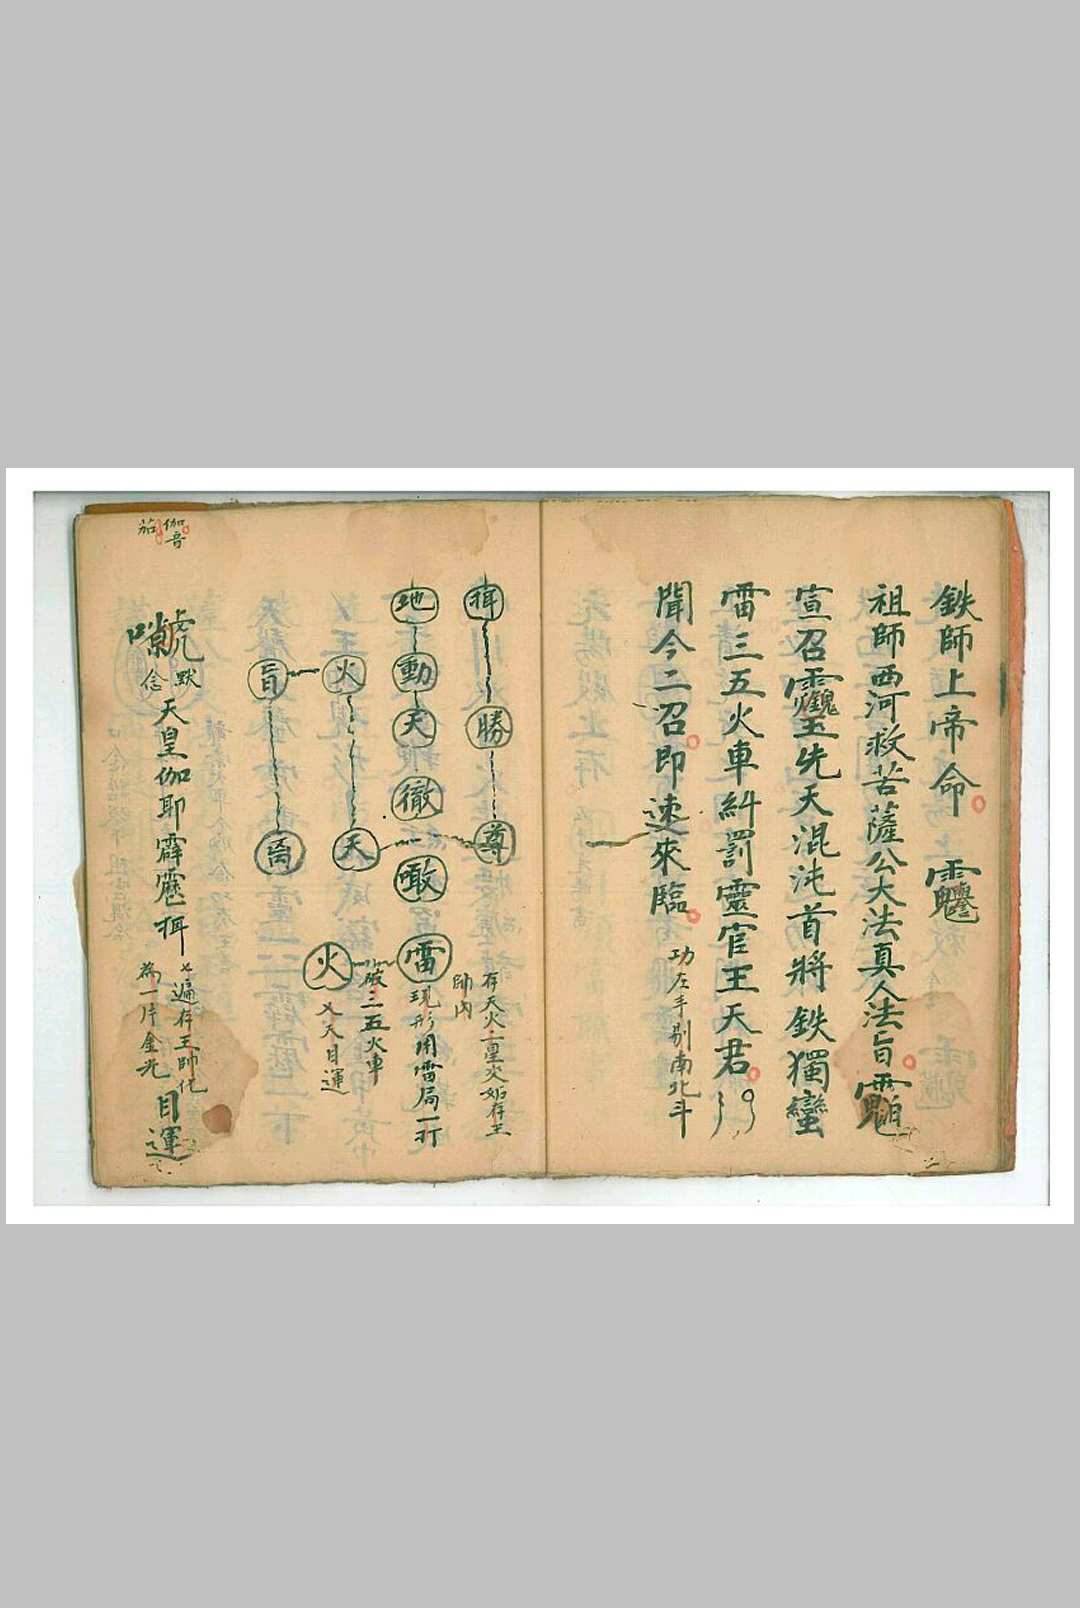 鉄師上帝命
祖師西河救苦薩公大法真人法旨
宣召
先天混沌首將鉄獨蠻
雷三五火車糾罰靈官王天君
聞今二召即速來臨
功左手剔南北斗
揖 勝 尊
存天火
師內
地 動 天 徹 雷
現形用雷局一打
三五火車
火 天 火
乂天目運
旨
伽音
茄
默念
天皇伽耶霹靂揖
乂遍存王帥化
為一片金光
目運